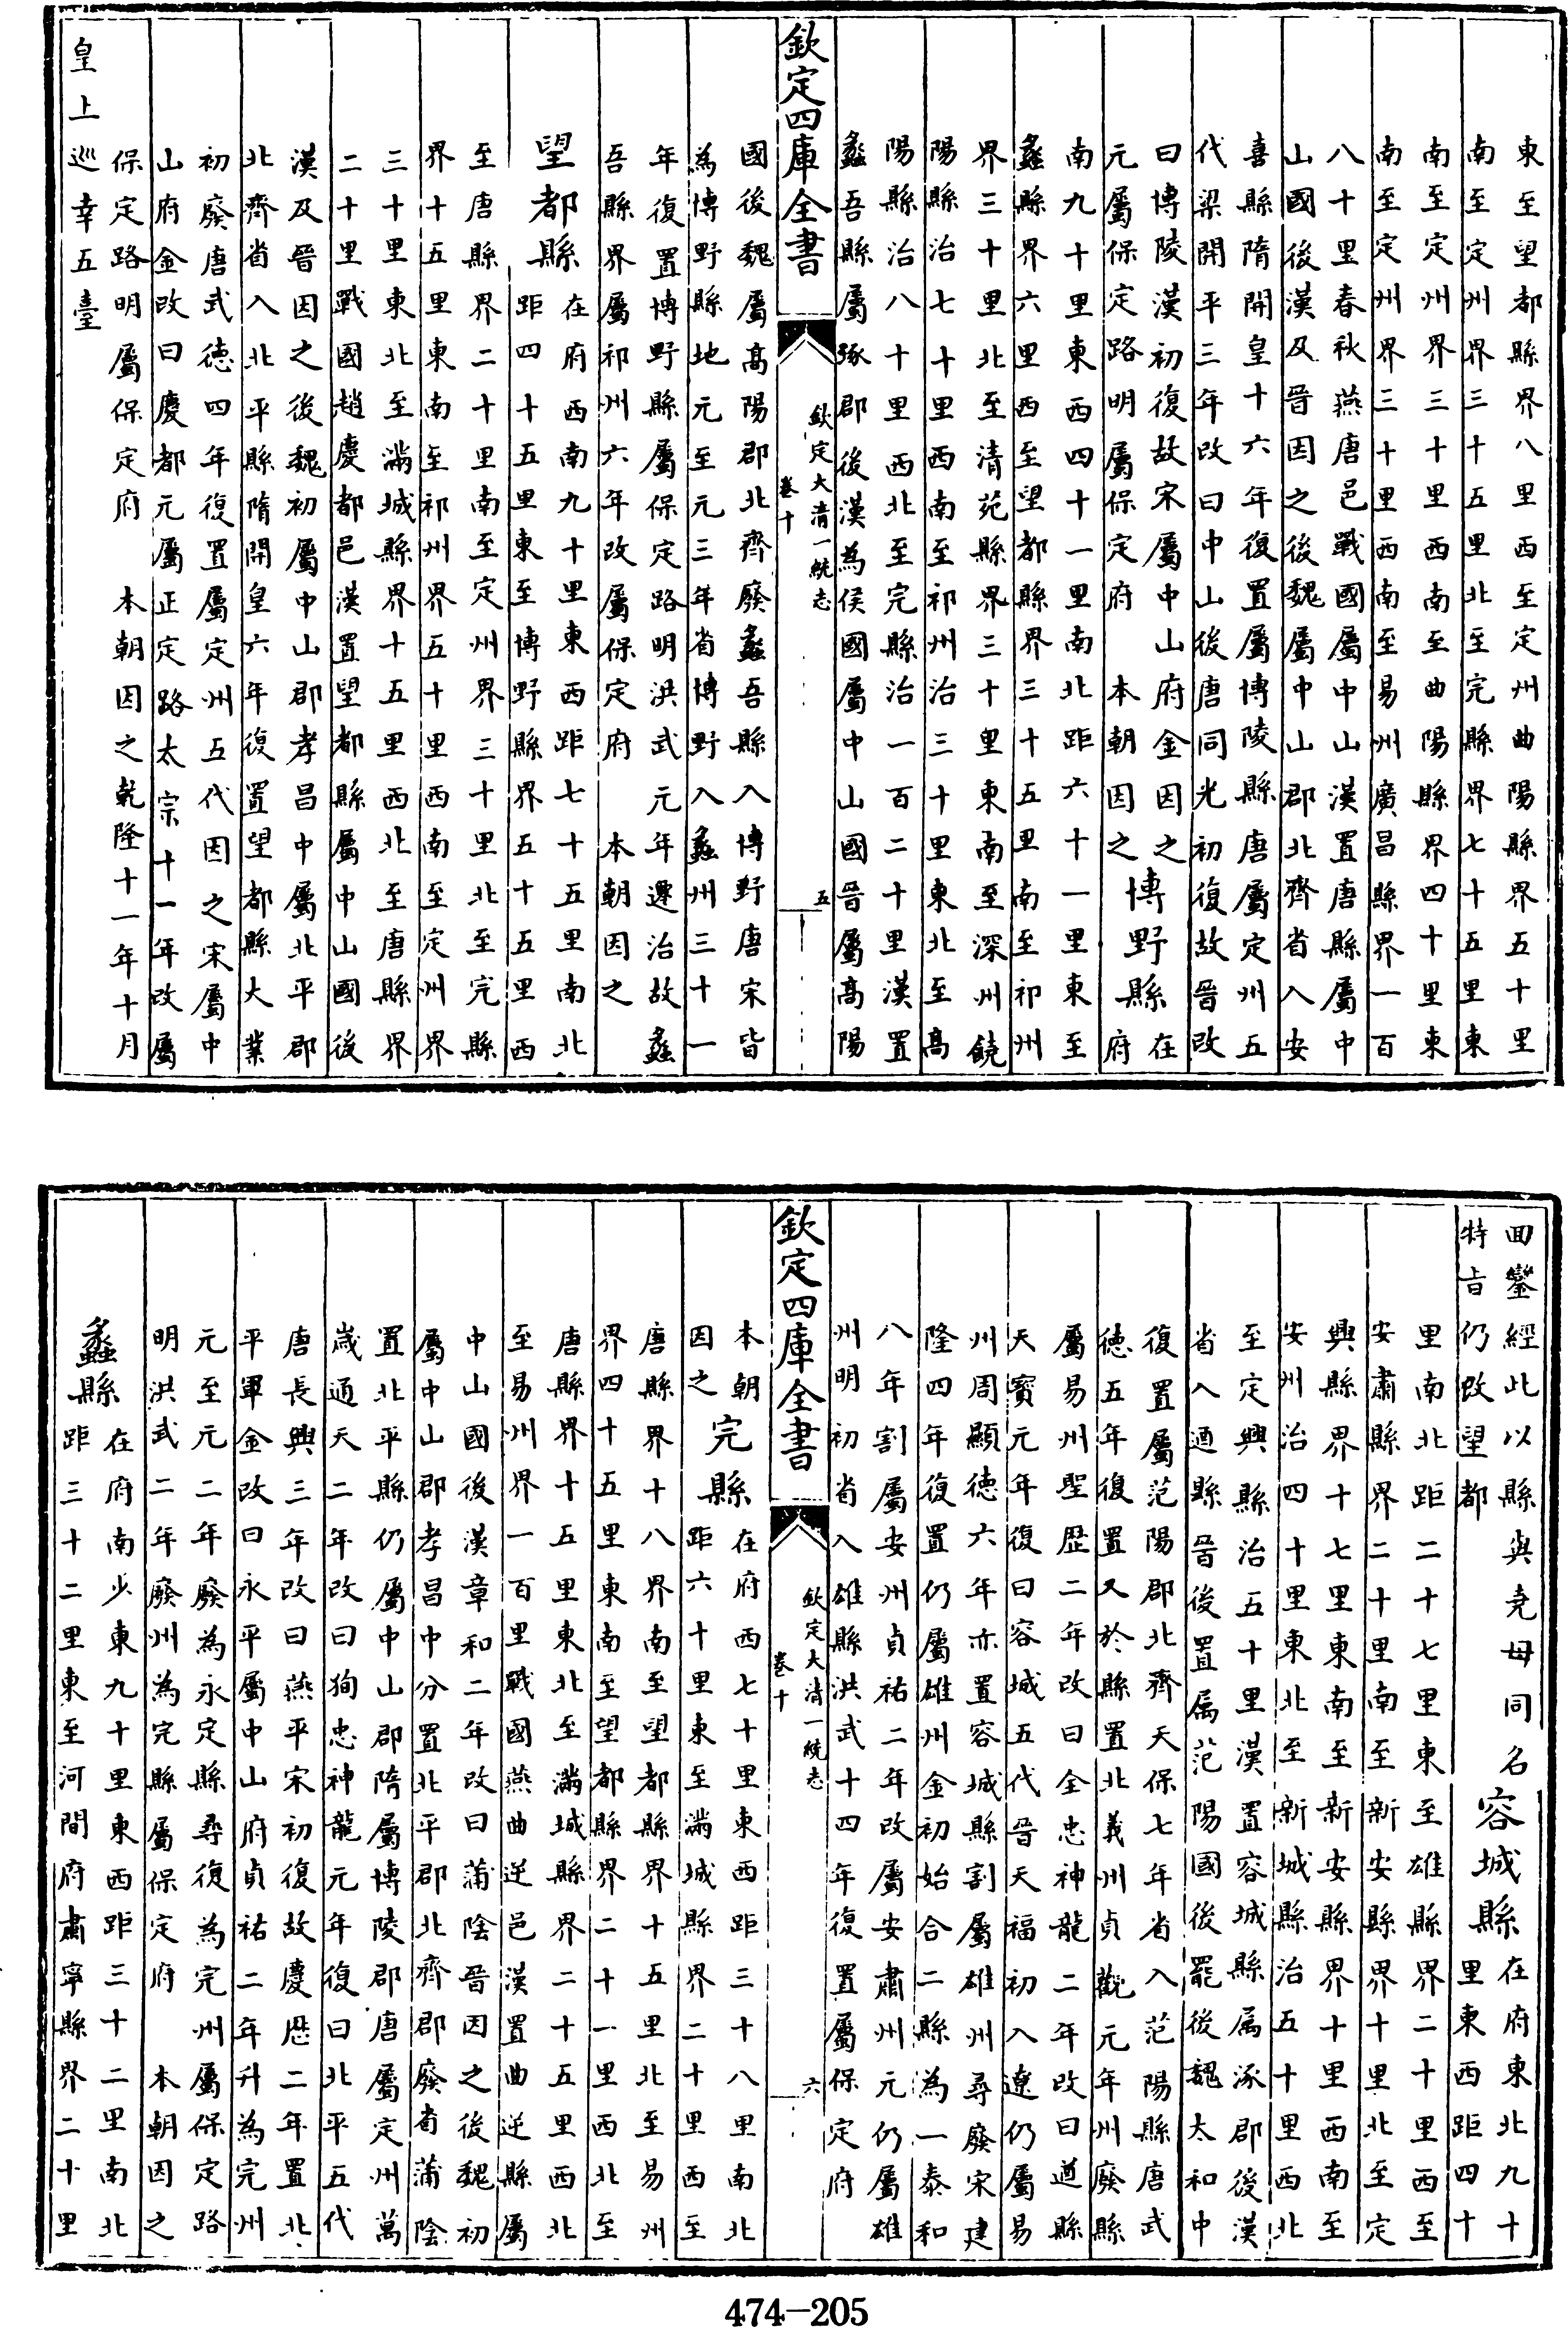 東至望都縣界八里西至定州曲陽縣界五十里
南至定州界三十五里北至完縣界七十五里東
南至定州界三十里西南至曲陽縣界四十里東
南至定州界三十里西南至易州廣昌縣界一百
八十里春秋燕唐邑戰國屬中山漢置唐縣屬中
山國後漢及晉因之後魏屬中山郡北齊省入安
喜縣隋開皇十六年復置屬博陵縣唐屬定州五
代梁開平三年改曰中山後唐同光初復故晉改
曰博陵漢初復故宋屬中山府金因之
元屬保定路明屬保定府　本朝因之
博野縣
在
府
南九十里東西四十一里南北距六十一里東至
蠡縣界六里西至望都縣界三十五里南至祁州
界三十里北至清苑縣界三十里東南至深州饒
陽縣治七十里西南至祁州治三十里東北至高
陽縣治八十里西北至完縣治一百二十里漢置
蠡吾縣屬琢郡後漢為侯國屬中山國晉屬高陽
欽定四庫全書
欽定大清一統志
卷十
五
國後魏屬高陽郡北齊廢蠡吾縣入博野唐宋皆
為博野縣地元至元三年省博野入蠡州三十一
年復置博野縣屬保定路明洪武元年遷治故蠡
吾縣界屬祁州六年改屬保定府　本朝因之
望都縣
在府西南九十里東西距七十五里南北
距四十五里東至博野縣界五十五里西
至唐縣界二十里南至定州界三十里北至完縣
界十五里東南至祁州界五十里西南至定州界
三十里東北至滿城縣界十五里西北至唐縣界
二十里戰國趙慶都邑漢置望都縣屬中山國後
漢及晉因之後魏初屬中山郡孝昌中屬北平郡
北齊省入北平縣隋開皇六年復置望都縣大業
初廢唐武德四年復置屬定州五代因之宋屬中
山府金改曰慶都元屬正定路太宗十一年改屬
保定路明屬保定府　本朝因之乾隆十一年十月
皇上巡幸五臺
回鑾經此以縣與堯母同名
特旨仍改望都
容城縣
在府東北九十
里東西距四十
里南北距二十七里東至雄縣界二十里西至
安肅縣界二十里南至新安縣界十里北至定
興縣界十七里東南至新安縣界十里西南至
安州治四十里東北至新城縣治五十里西北
至定興縣治五十里漢置容城縣属涿郡後漢
省入逎縣晉後置属范陽國後罷後魏太和中
復置屬范陽郡北齊天保七年省入范陽縣唐武
德五年復置又於縣置北義州貞觀元年州廢縣
屬易州聖歴二年改曰全忠神龍二年改曰遒縣
天寳元年復曰容城五代晉天福初入遼仍屬易
州周顯德六年亦置容城縣割屬雄州尋廢宋建
隆四年復置仍屬雄州金初始合二縣為一泰和
八年割屬安州貞祐二年改屬安肅州元仍屬雄
州明初省入雄縣洪武十四年復置屬保定府
欽定四庫全書
欽定大清一統志
卷十
六
本朝
因之
完縣
在府西七十里東西距三十八里南北
距六十里東至滿城縣界二十里西至
唐縣界十八界南至望都縣界十五里北至易州
界四十五里東南至望都縣界二十一里西北至
唐縣界十五里東北至滿城縣界二十五里西北
至易州界一百里戰國燕曲逆邑漢置曲逆縣屬
中山國後漢章和二年改曰蒲陰晉因之後魏初
屬中山郡孝昌中分置北平郡北齊郡廢省蒲陰
置北平縣仍屬中山郡隋屬博陵郡唐屬定州萬
歲通天二年改曰狥忠神龍元年復曰北平五代
唐長興三年改曰燕平宋初復故慶歴二年置北
平軍金改曰永平屬中山府貞祐二年升為完州
元至元二年廢為永定縣尋復為完州屬保定路
明洪武二年廢州為完縣屬保定府　本朝因之
蠡縣
在府南少東九十里東西距三十二里南北
距三十二里東至河間府肅寧縣界二十里
474—205